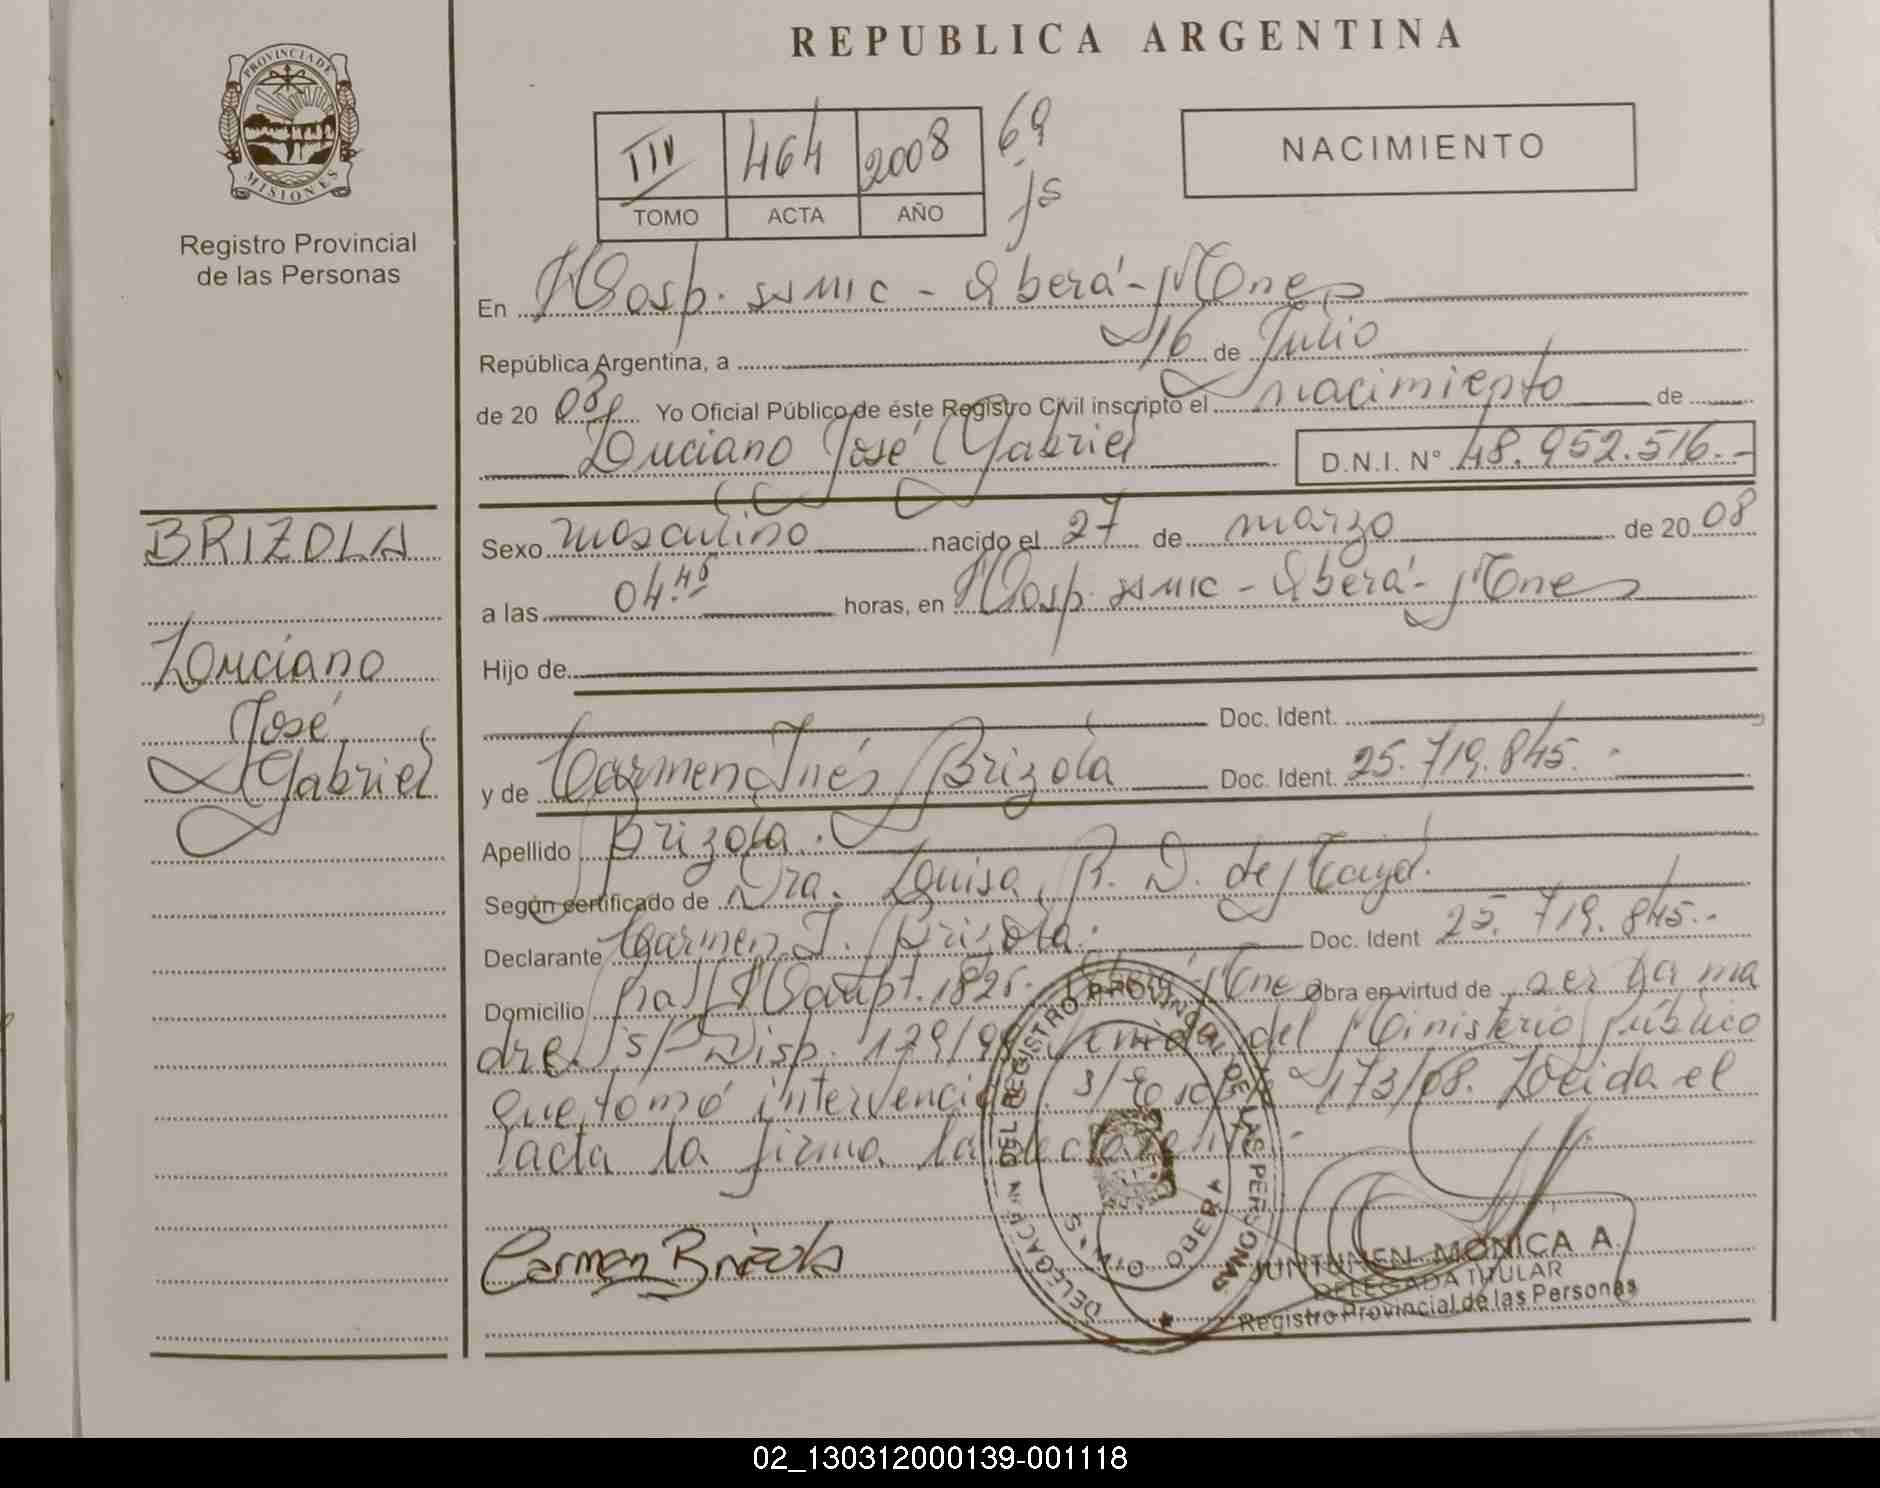 REPUBLICA ARGENTINA
PROVINCIA DE
MISIONES
Registro Provincial
de las Personas
III 464 2008 69
TOMO ACTA AÑO js
NACIMIENTO
En Hosp. SSMIC - Oberá - Mnes
República Argentina, a 16 de Julio
de 20 08 Yo Oficial Público de éste Registro Civil inscripto el nacimiento de
Luciano José Gabriel D.N.I. N° 48.952.516.-
BRIZOLA
Luciano
José
Gabriel
Sexo masculino nacido el 27 de marzo de 20 08
a las 04.45 horas, en Hosp. SSMIC - Oberá - Mnes
Hijo de
Doc. Ident.
y de Carmen Inés Brizola Doc. Ident. 25.719.845.-
Apellido Brizola.
Según certificado de Dra. Luisa R. D. de
Declarante Carmen I. Brizola. Doc. Ident 25.719.845.-
Domicilio 1826. Oberá - Mnes Obra en virtud de ser la ma
dre. s/ Disp. 179/99 del Ministerio Público
que tomó intervención s/ 173/08. Leída el
acta la firma la declarante.-
Carmen Brizola
REGISTRO PROVINCIAL DE LAS PERSONAS
OBERA
JUNTUNEN MONICA A.
DELEGADA TITULAR
Registro Provincial de las Personas
02_130312000139-001118